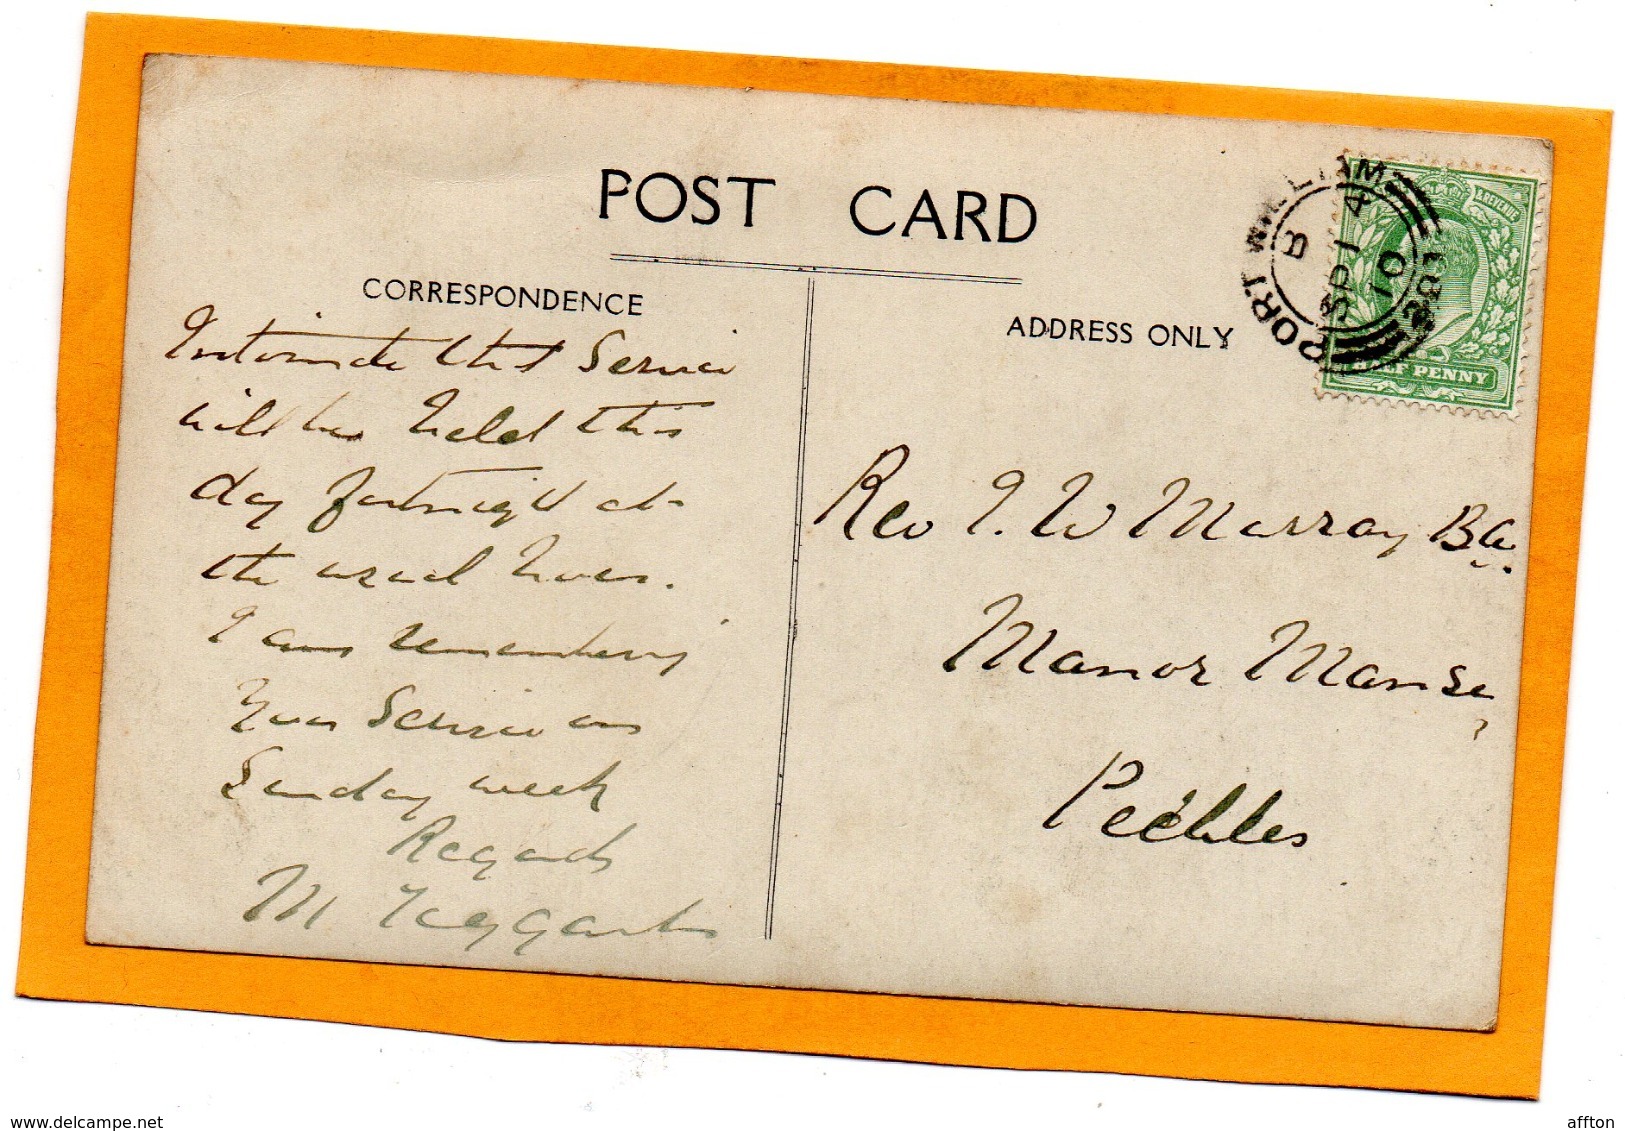 POST CARD
CORRESPONDENCE
ADDRESS ONLY
PORT WILLIAM
B
SP 14
10
& REVENUE
HALF PENNY
Intimate that Service
will be held this
day fortnight at
the usual hour.
I am remembering
Your Service on
Sunday week
Regards
M Taggart
Rev J. W Murray Ba.
Manor Manse,
Peebles
delcampe.net
affton